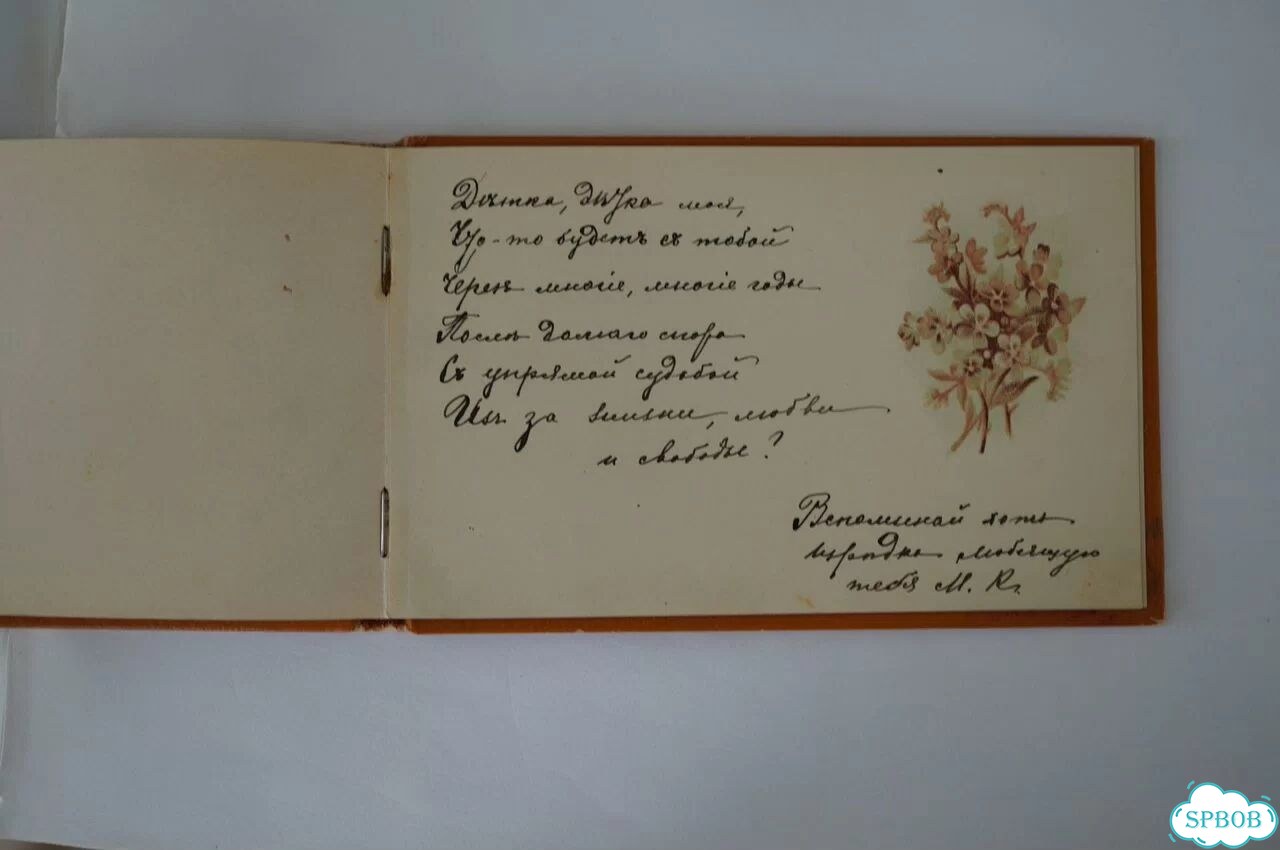 Дѣтка, дѣтка моя,
Что-то будетъ съ тобой
Черезъ многіе, многіе годы
Послѣ долгаго спора
Съ упрямой судьбой
Изъ за жизни, любви
и свободы?
Вспоминай хоть
изрѣдка любящую
тебя М. К.
SPBOB